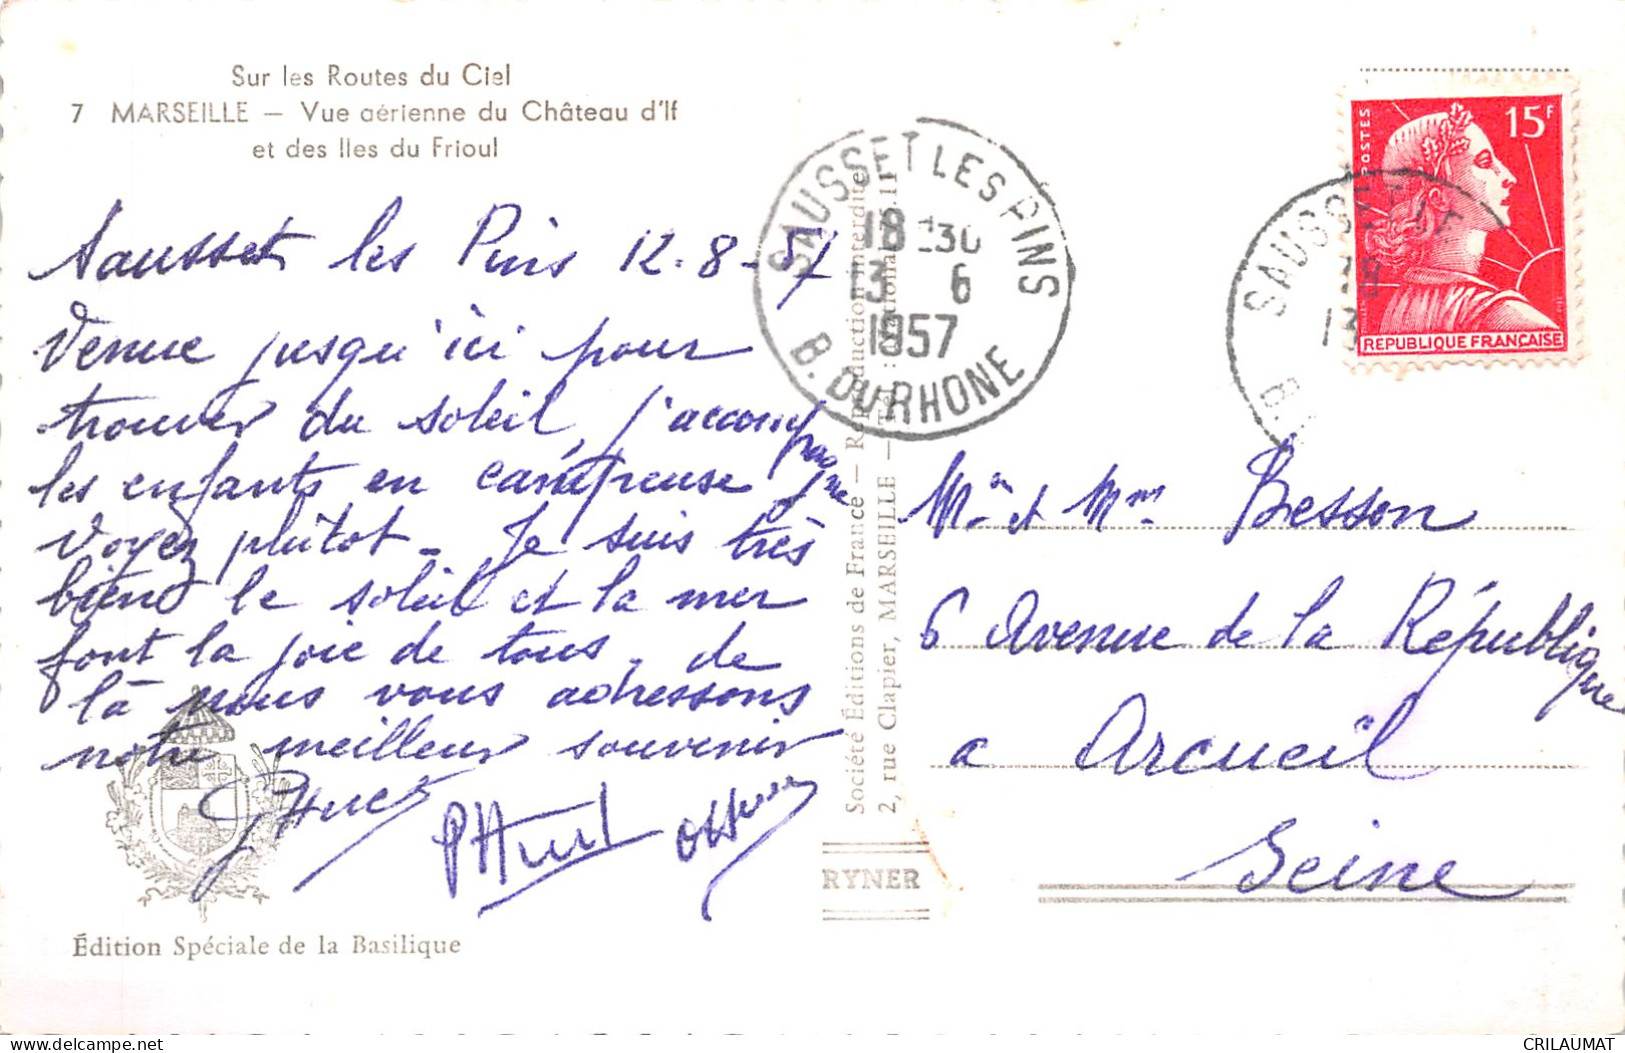 Sur les Routes du Ciel
7 MARSEILLE — Vue aérienne du Château d'If
et des Iles du Frioul
Sausset les Pins 12-8-57
Venue jusqu'ici pour
trouver du soleil, j'accompagne
les enfants en campeuse
voyez plûtot - Je suis très
bien le soleil et la mer
font la joie de tous, de
là nous vous adressons
notre meilleur souvenir
Édition Spéciale de la Basilique
SAUSSET LES PINS
18 30
13 6
1957
B. DU RHONE
Société Éditions de France — Reproduction interdite
2, rue Clapier, MARSEILLE — Tél. : National 15.11
RYNER
POSTES
15F
REPUBLIQUE FRANÇAISE
SAUSSET LE
18
13
B.
Mr et Mme Besson
6 Avenue de la République
a Arcueil
Seine
CRILAUMAT